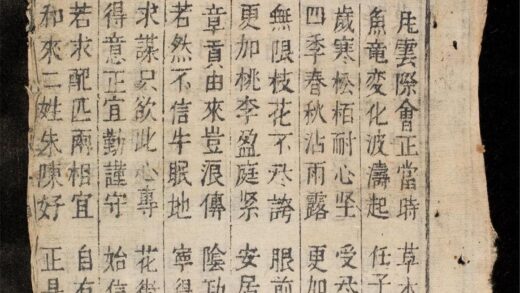 雲際會正當時 草木
魚竜変化波濤起 任子
歲寒松栢耐心坚 受尽
四季春秋沾雨露 更加
無限枝花不尽誇 眼前
更加桃李盈庭 安居
章貢由來豈浪傳 陰功
若然不信牛眠地 寧得
求謀只欲此心專 花街
得意正宜勤謹守 始信
若求配匹兩相宜 自有
和來二姓朱陳好 正是